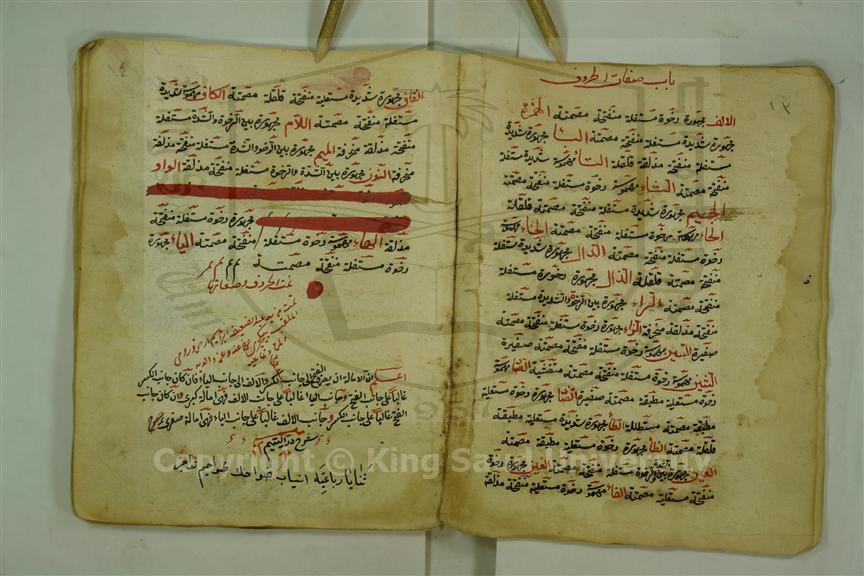 باب صفات الحروف
١٣
الالف مجهورة رخوة مستفلة منفتحة مصمتة الهمزة
مجهورة شديدة مستفلة منفتحة مصمتة البا مجهورة شديدة
مستفلة منفتحة مذلقة قلقلة التا مهموسة شديدة مستفلة
منفتحة مصمتة الثاء مهموسة رخوة مستفلة منفتحة مصمتة
الجيم مجهورة شديدة مستفلة منفتحة مصمتة قلقلة
الحاء مهموسة رخوة مستفلة منفتحة مصمتة الخاء مهموسة
رخوة مستفلة منفتحة مصمتة الدال مجهورة شديدة مستفلة
منفتحة مصمتة قلقلة الذال مجهورة رخوة مستفلة
منفتحة مصمتة الراء مجهورة بين الرخوة والشديدة مستفلة
منفتحة مذلقة منحرفة الزاء مجهورة رخوة مستفلة منفتحة مصمتة
صفيرة السين مهموسة رخوة مستفلة منفتحة مصمتة صفيرة
الشين مهموسة رخوة مستفلة منفتحة مصمتة متفشية الصاد مهموسة
رخوة مستعلية مطبقة مصمتة صفيرة الضاد مجهورة رخوة مستعلية
مطبقة مصمتة مستطيلة الطاء مجهورة شديدة مستعلية مطبقة
قلقلة مصمتة الظاء مجهورة رخوة مستعلية مطبقة مصمتة
العين مجهورة بين الرخوة مستفلة منفتحة مصمتة الغين مجهورة رخوة
منفتحة مستعلية مصمتة الفاء مهموسة رخوة مستفلة منفتحة مذلقة
١٤
القاف مجهورة شديدة مستعلية منفتحة قلقلة مصمتة الكاف مهموسة شديدة
مستفلة منفتحة مصمتة اللام مجهورة بين الرخوة والشدة مستفلة
منفتحة مذلقة منحرفة الميم مجهورة بين الرخوة والشدة مستفلة منفتحة مذلقة
النون مجهورة بين الشدة والرخوة مستفلة منفتحة مذلقة الواو
مجهورة رخوة مستفلة منفتحة
مذلقة الهاء مهموسة رخوة مستفلة منفتحة مصمتة الياء مجهورة
رخوة مستفلة منفتحة مصمتة تم تم تم
تمت الحروف وصفاتها
اعلم ان الامالة ان يعرف الفتح الى جانب الكسر والالف الى جانب الياء فان كان جانب الكسر
غالبا على جانب الفتح وجانب الياء غالبا على جانب الالف فهي امالة كبرى وان كان جانب
الفتح غالبا على جانب الكسر وجانب الالف غالبا على جانب الياء فهي امالة صغرى
شرح در اليتيم
ثنايا رباعية انياب ضواحك طواحن نواجذ
Copyright © King Saud University